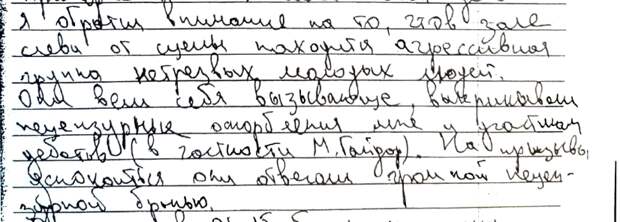 я обратил внимание на то, что в зале
слева от сцены находится агрессивная
группа нетрезвых молодых людей.
Они вели себя вызывающе, выкрикивали
нецензурные оскорбления мне и участникам
дебатов (в частности М. Гайдар). На призывы
успокоиться они отвечали громкой нецен-
зурной бранью.